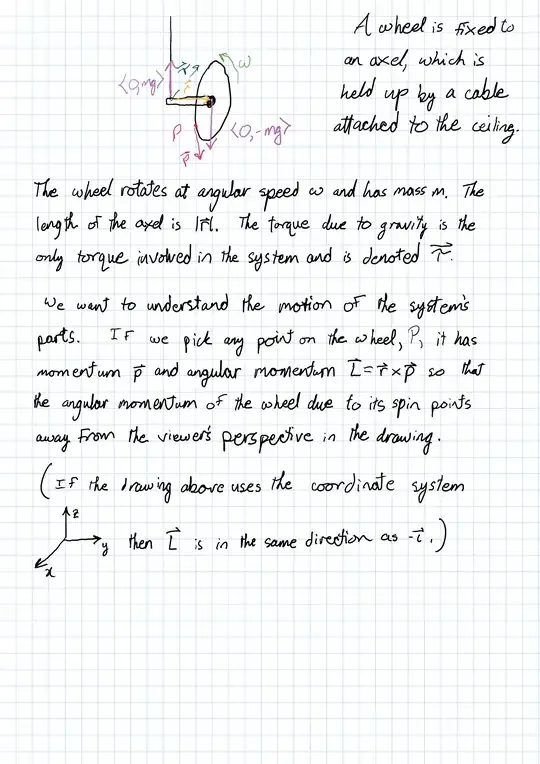 A wheel is fixed to
an axel, which is
held up by a cable
attached to the ceiling.
<0, mg>
τ⃗
r⃗
ω
P
p⃗
<0, -mg>
The wheel rotates at angular speed ω and has mass m. The
length of the axel is |r⃗|. The torque due to gravity is the
only torque involved in the system and is denoted τ⃗.
We want to understand the motion of the system's
parts. If we pick any point on the wheel, P, it has
momentum p⃗ and angular momentum L⃗ = r⃗ × p⃗ so that
the angular momentum of the wheel due to its spin points
away from the viewer's perspective in the drawing.
(If the drawing above uses the coordinate system
z
y
x
then L⃗ is in the same direction as -i⃗.)